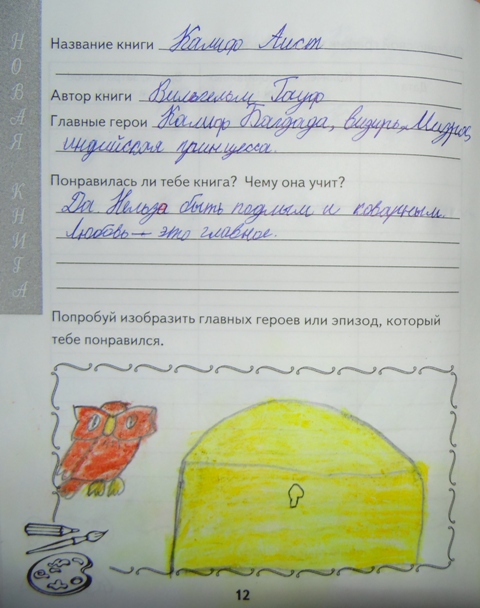 НОВАЯ КНИГА
Название книги Калиф Аист
Автор книги Вильгельм Гауф
Главные герои Калиф Багдада, визирь, Мизра,
индийская принцесса.
Понравилась ли тебе книга? Чему она учит?
Да Нельзя быть подлым и коварным.
Любовь – это главное.
Попробуй изобразить главных героев или эпизод, который
тебе понравился.
12